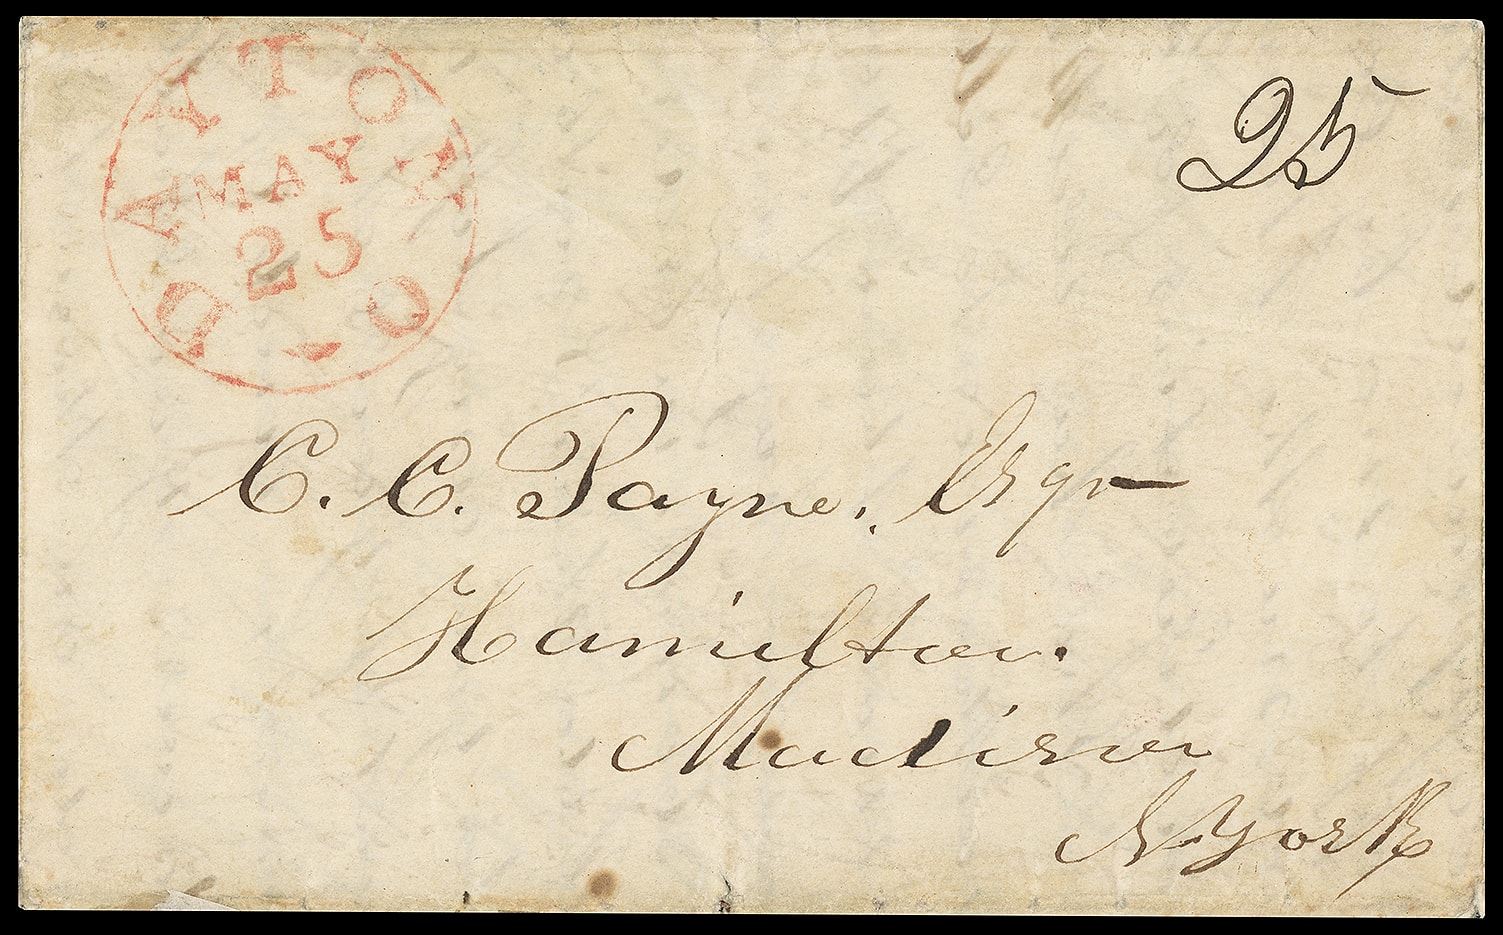 DAYTON O
MAY
25
25
C. C. Payne, Esqr
Hamilton.
Madison
N. York